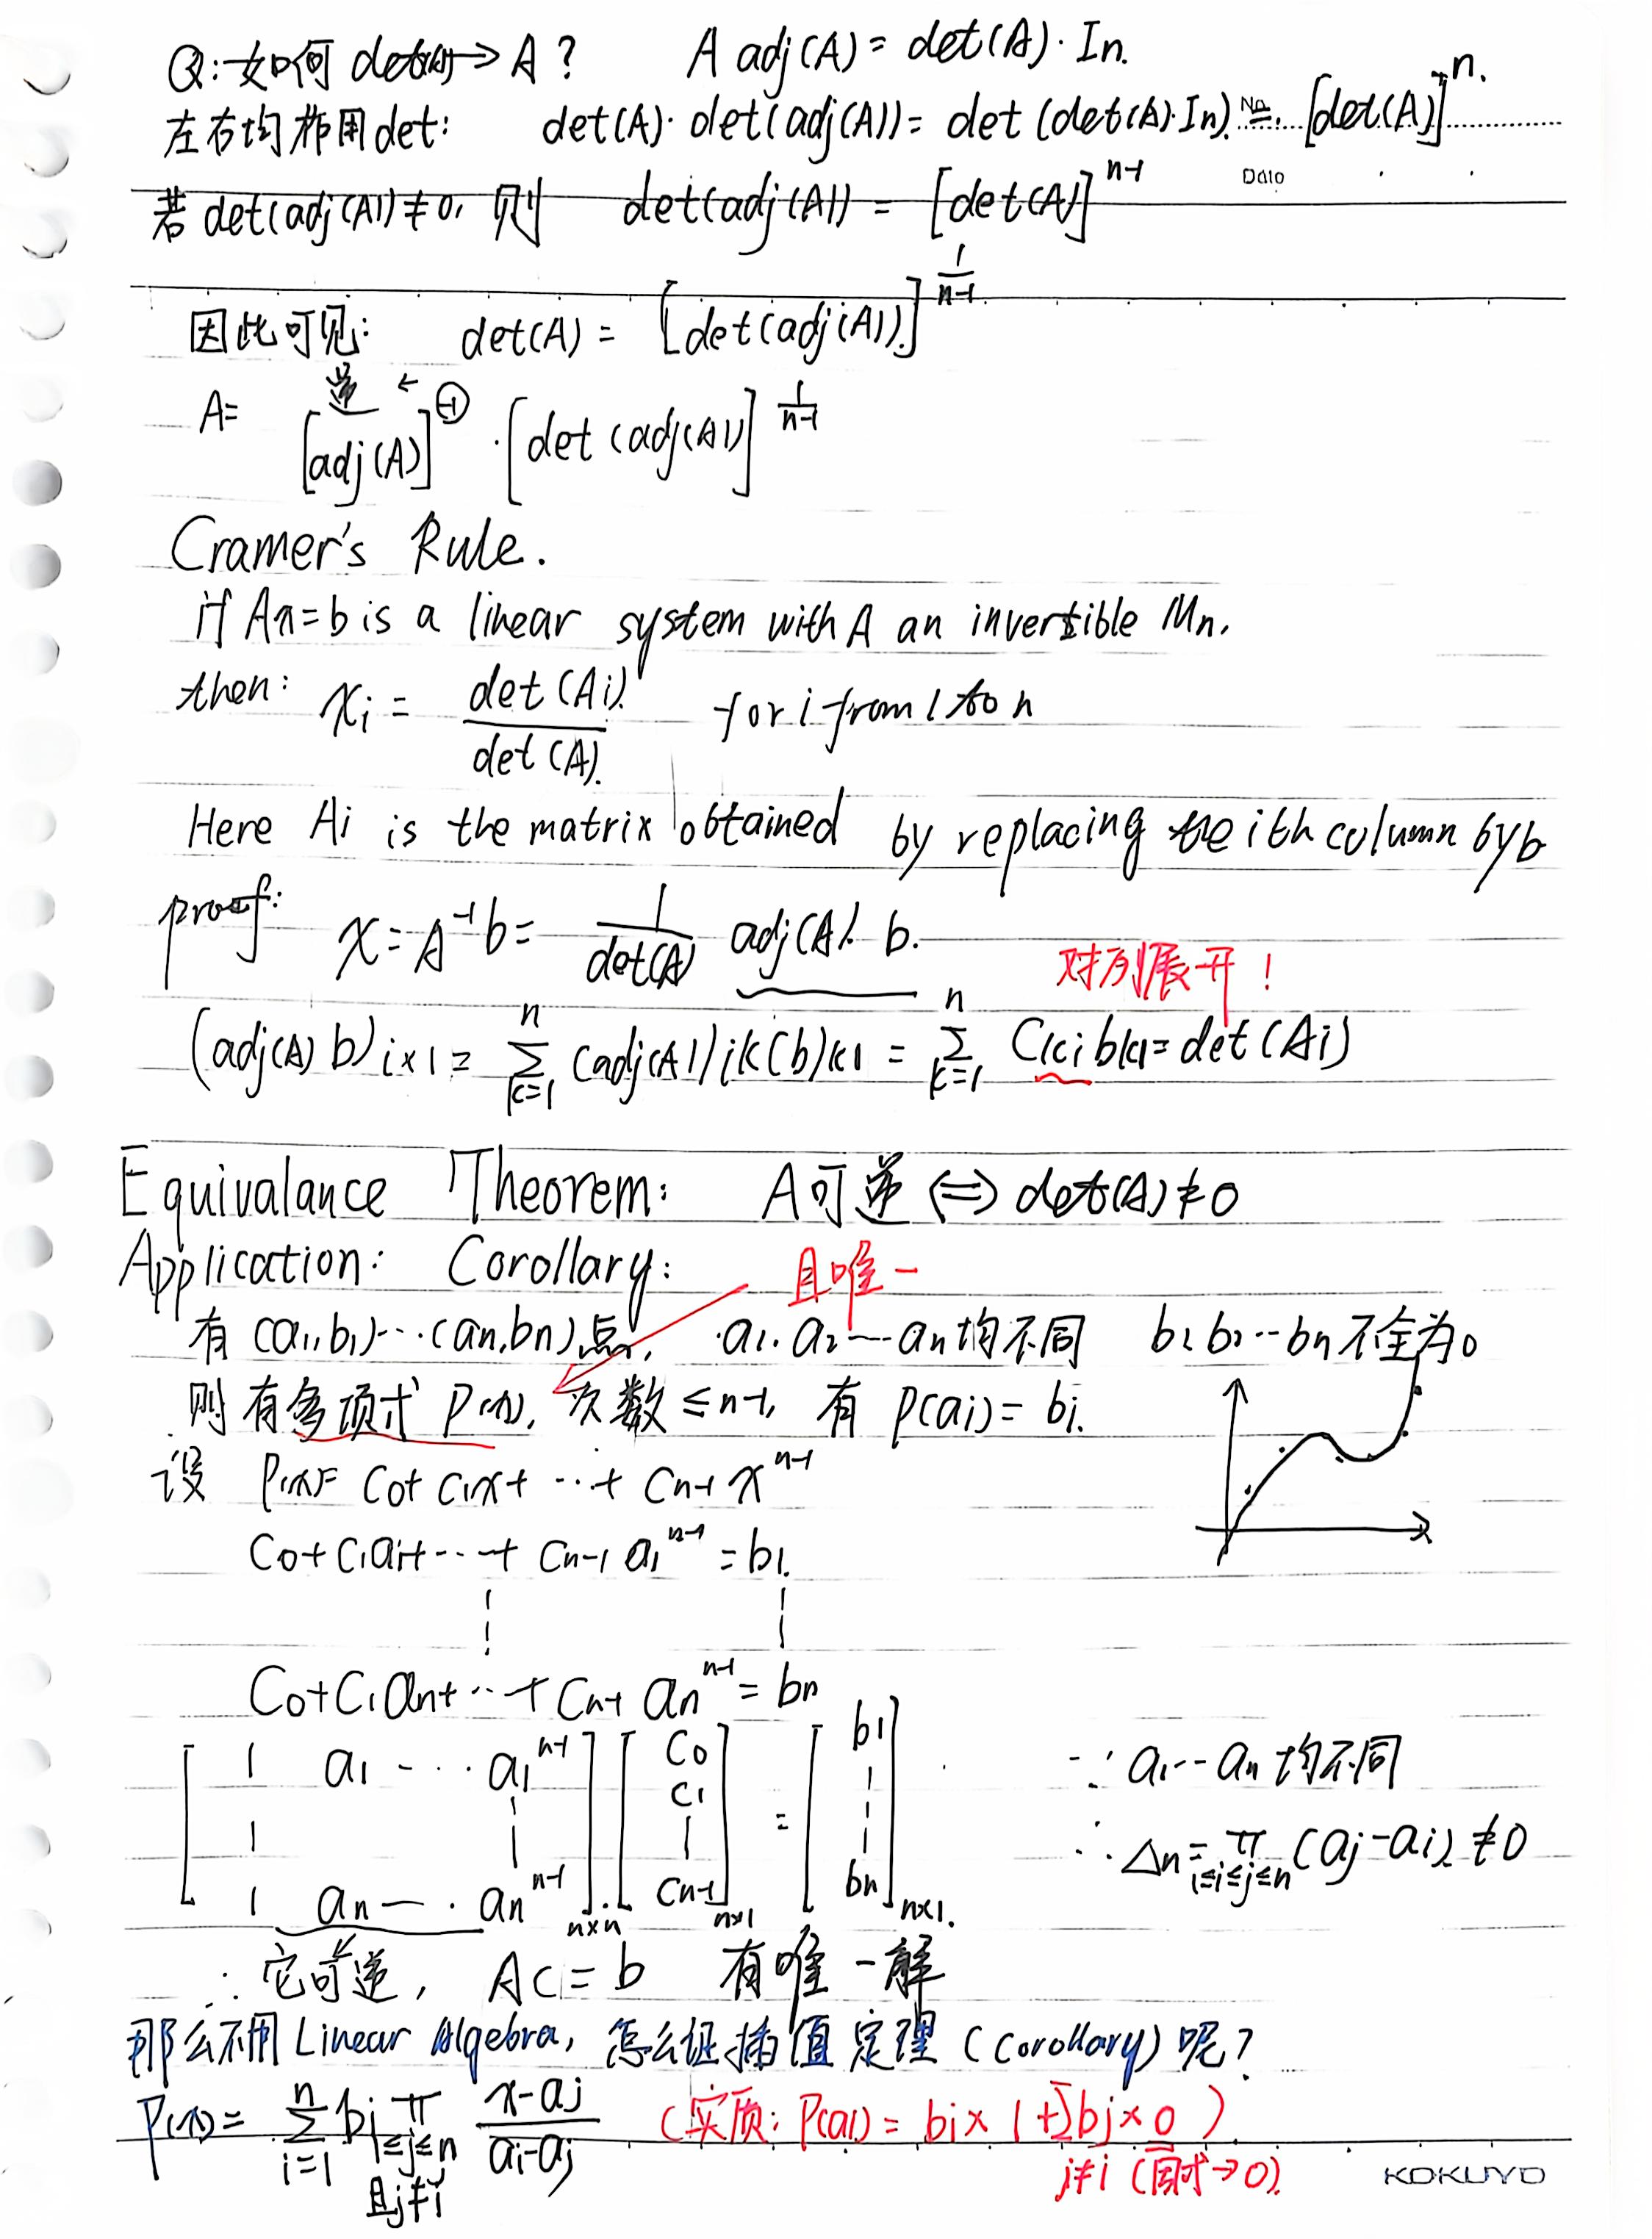 Q:如何 det(A)→A? A adj(A)=det(A)·In.
左右均作用det: det(A)·det(adj(A))=det(det(A)·In) = [det(A)]^n.
No.
Date
若det(adj(A))≠0, 则 det(adj(A)) = [det(A)]^{n-1}
因此可见: det(A) = [det(adj(A))]^{\frac{1}{n-1}}
逆 ←
A= [adj(A)]^{-1} · [det(adj(A))]^{\frac{1}{n-1}}
Cramer's Rule.
if Ax=b is a linear system with A an invertible Mn.
then: xi = \frac{det(Ai)}{det(A)} for i from 1 to n
Here Ai is the matrix obtained by replacing the ith column by b
proof: x=A^{-1}b= \frac{1}{det(A)} adj(A). b.
对列展开!
(adj(A) b)i×1 = \sum_{k=1}^{n} (adj(A))ik(b)k1 = \sum_{k=1}^{n} Cki bk1=det(Ai)
Equivalance Theorem: A可逆 ⟺ det(A)≠0
Application: Corollary: 且唯一
有 (a1,b1)…(an,bn)点, a1.a2…an均不同 b1 b2…bn不全为0
则有多项式 P(x), 次数≤n-1, 有 p(ai)=bi.
设 P(x)= C0+C1x+…+Cn-1 x^{n-1}
C0+C1a1+…+Cn-1 a1^{n-1}=b1.
⋮ ⋮
C0+C1an+…+Cn-1 an^{n-1}=bn
[ 1 a1 … a1^{n-1} ] [ C0 ] [ b1 ]
[ ⋮ ⋮ ] [ C1 ⋮ ] = [ ⋮ ] ∵ a1…an均不同
[ 1 an … an^{n-1} ]n×n · [ Cn-1 ]n×1 [ bn ]n×1. ∴ Δn= π_{1≤i≤j≤n} (aj-ai) ≠0
∴ 它可逆, AC=b 有唯一解
那么不用 Linear Algebra, 怎么证插值定理 (Corollary)呢?
P(x)= \sum_{i=1}^{n} bi π_{1≤j≤n 且j≠i} \frac{x-aj}{ai-aj} (实质: P(ai)=bi×1+Σbj×0)
j≠i (因式→0).
KOKUYO